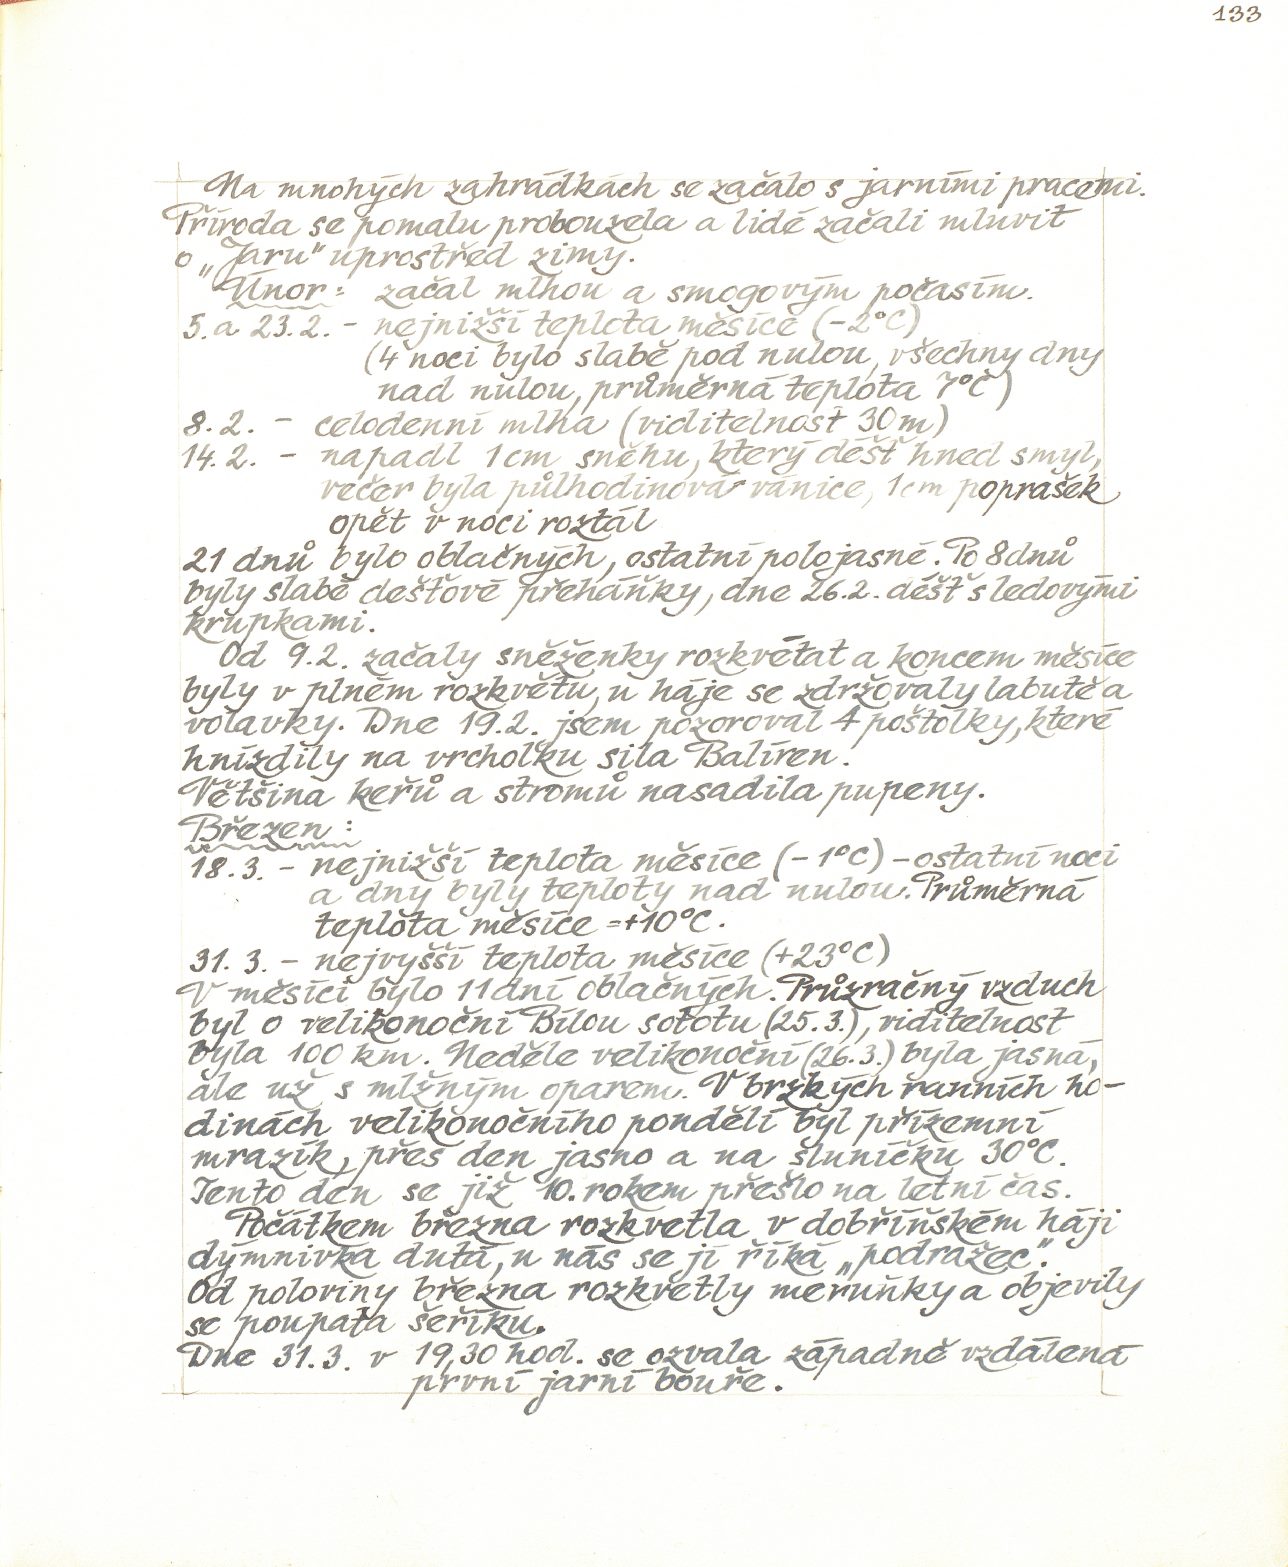 133
Na mnohých zahrádkách se začalo s jarními pracemi.
Příroda se pomalu probouzela a lidé začali mluvit
o „Jaru" uprostřed zimy.
Únor: začal mlhou a smogovým počasím.
5. a 23. 2. - nejnižší teplota měsíce (-2°C)
(4 noci bylo slabě pod nulou, všechny dny
nad nulou, průměrná teplota 7°C)
8. 2. - celodenní mlha (viditelnost 30 m)
14. 2. - napadl 1 cm sněhu, který déšť hned smyl,
večer byla půlhodinová vánice, 1 cm poprašek
opět v noci roztál
21 dnů bylo oblačných, ostatní polojasné. Po 8 dnů
byly slabé dešťové přeháňky, dne 26.2. déšť s ledovými
krupkami.
Od 9.2. začaly sněženky rozkvétat a koncem měsíce
byly v plném rozkvětu, u háje se zdržovaly labutě a
volavky. Dne 19.2. jsem pozoroval 4 poštolky, které
hnízdily na vrcholku sila Balíren.
Většina keřů a stromů nasadila pupeny.
Březen:
18. 3. - nejnižší teplota měsíce (-1°C) - ostatní noci
a dny byly teploty nad nulou. Průměrná
teplota měsíce = +10°C.
31. 3. - nejvyšší teplota měsíce (+23°C)
V měsíci bylo 11 dní oblačných. Průzračný vzduch
byl o velikonoční Bílou sototu (25.3.), viditelnost
byla 100 km. Neděle velikonoční (26.3.) byla jasná,
ale už s mlžným oparem. V brzkých ranních ho-
dinách velikonočního pondělí byl přízemní
mrazík, přes den jasno a na sluníčku 30°C.
Tento den se již 10. rokem přešlo na letní čas.
Počátkem března rozkvetla v dobříňském háji
dymnivka dutá, u nás se jí říká „podražec".
Od poloviny března rozkvetly meruňky a objevily
se poupata šeříku.
Dne 31. 3. v 19,30 hod. se ozvala západně vzdálená
první jarní bouře.